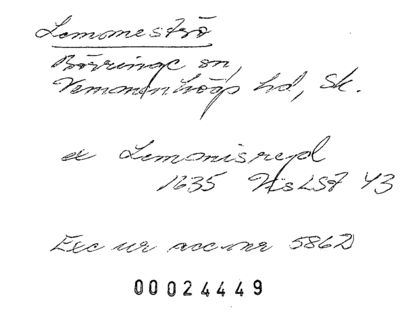 Lemmeströ
Börringe sn,
Vemmenhögs hd, Sk.
ex Lemonisreyd
1635 HisLSt 43
Exc ur acc nr 5862
00024449